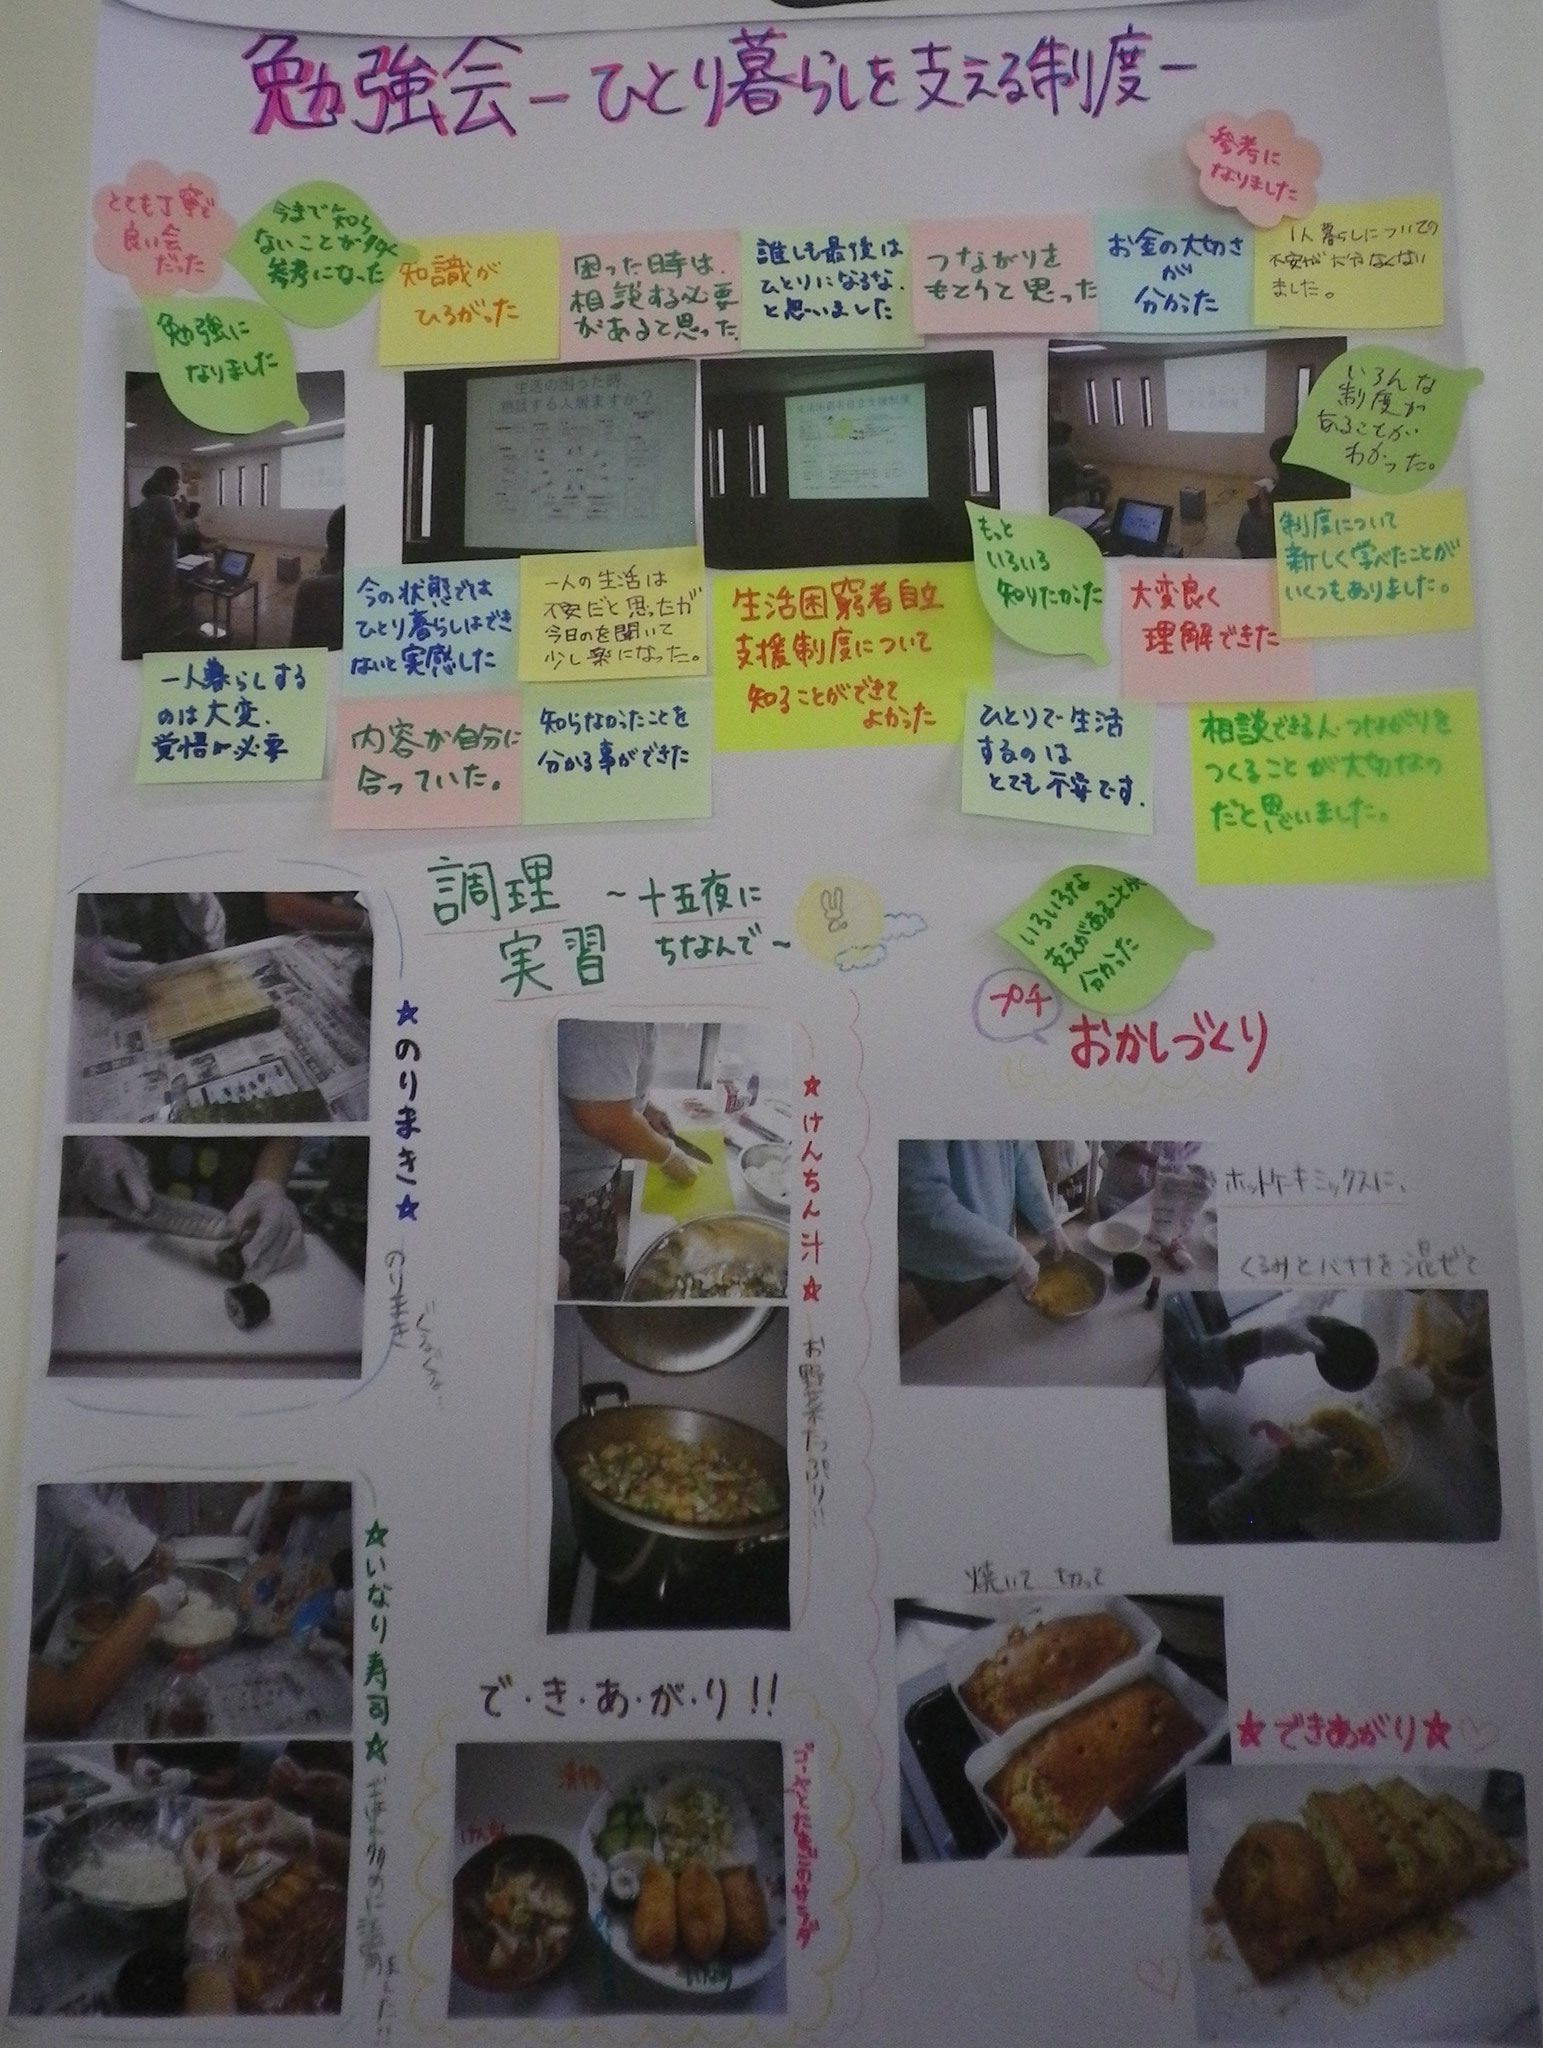 勉強会-ひとり暮らしを支える制度-
とても丁寧で
良い会
だった
今まで知ら
ないことが多く
参考になった
勉強に
なりました
知識が
ひろがった
困った時は、
相談する必要
があると思った。
誰しも最後は
ひとりになるな、
と思いました
つながりを
もとうと思った
お金の大切さ
が
分かった
参考に
なりました
1人暮らしについての
不安が
ました。
いろんな
制度が
あることが
わかった。
生活の困った時、
相談する人居ますか?
生活困窮者自立支援制度
今の状態では
ひとり暮らしはでき
ないと実感した
一人の生活は
不安だと思ったが
今日のを聞いて
少し楽になった。
生活困窮者自立
支援制度について
知ることができて
よかった
もっと
いろいろ
知りたかった
大変良く
理解できた
制度について
新しく学べたことが
いくつもありました。
一人暮らしする
のは大変、
覚悟が必要
内容が自分に
合っていた。
知らなかったことを
分かる事ができた
ひとりで生活
するのは
とても不安です。
相談できる人・つながりを
つくることが大切なの
だと思いました。
調理
実習
~十五夜に
ちなんで~
いろいろな
支えがあることが
分かった
プチ
おかしづくり
★のりまき★
のりまき
ぐるぐる…
★けんちん汁★
お野菜たっぷり!!
★いなり寿司★
ホットケーキミックスに、
くるみとバナナを混ぜて
焼いて 切って
★できあがり★
で・き・あ・が・り!!
漬物
けんちん
いなり
ゴーヤとたまごのサラダ